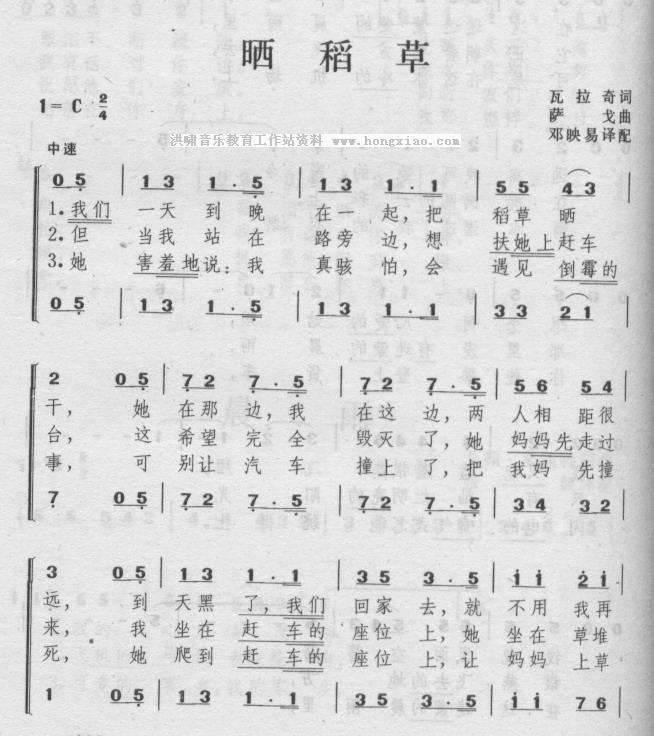 晒 稻 草
1=C 2/4
瓦 拉 奇 词
萨 戈 曲
邓 映 易 译 配
洪啸音乐教育工作站资料 www.hongxiao.com
中速
0 5 | 1 3 1 · 5 | 1 3 1 · 1 | 5 5 4 3 |
1.我们 一天 到 晚 在一 起,把 稻草 晒
2.但 当我 站在 路旁 边,想 扶她上 赶车
3.她 害羞地说:我 真骇 怕,会 遇见 倒霉的
0 5 | 1 3 1 · 5 | 1 3 1 · 1 | 3 3 2 1 |
2 0 5 | 7 2 7 · 5 | 7 2 7 · 5 | 5 6 5 4 |
干, 她 在那 边,我 在这 边,两 人相 距很
台, 这 希望 完全 毁灭 了,她 妈妈先 走过
事, 可 别让 汽车 撞上 了,把 我妈 先撞
7 0 5 | 7 2 7 · 5 | 7 2 7 · 5 | 3 4 3 2 |
3 0 5 | 1 3 1 · 1 | 3 5 3 · 5 | i i 2 i |
远, 到 天黑 了,我们 回家 去,就 不用 我再
来, 我 坐在 赶 车的 座位 上,她 坐在 草堆
死, 她 爬到 赶 车的 座位 上,让 妈妈 上草
1 0 5 | 1 3 1 · 1 | 3 5 3 · 5 | i i 7 6 |